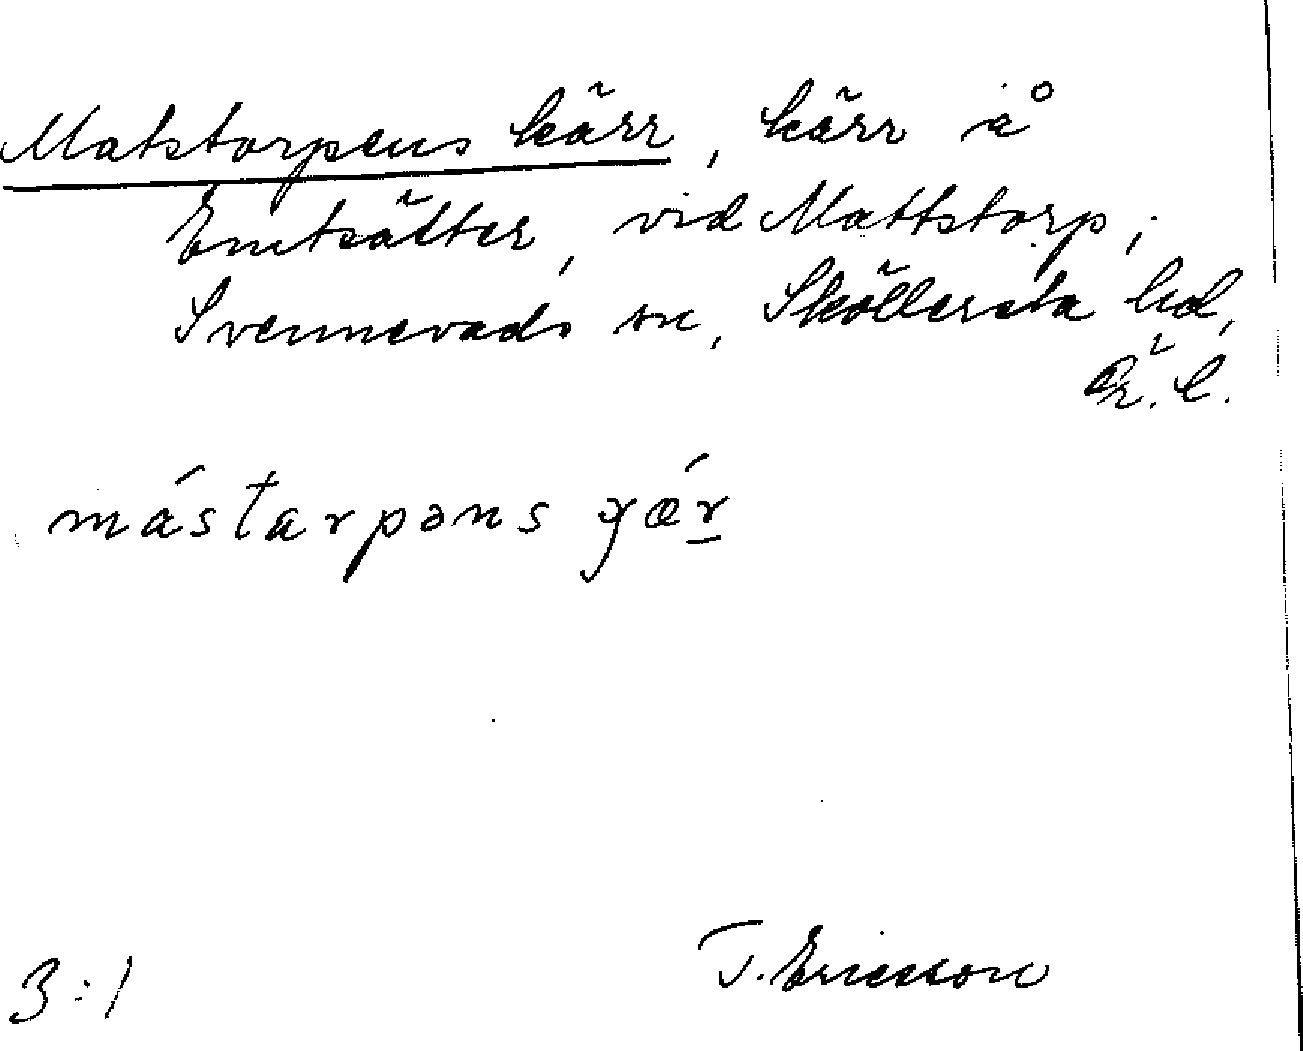 Matstorpens kärr, kärr å
Emtsätter, vid Mattstorp,
Svennevads sn, Sköllersta hd,
Ör. l.
mástarpəns gǽr
3:1
T. Ericsson